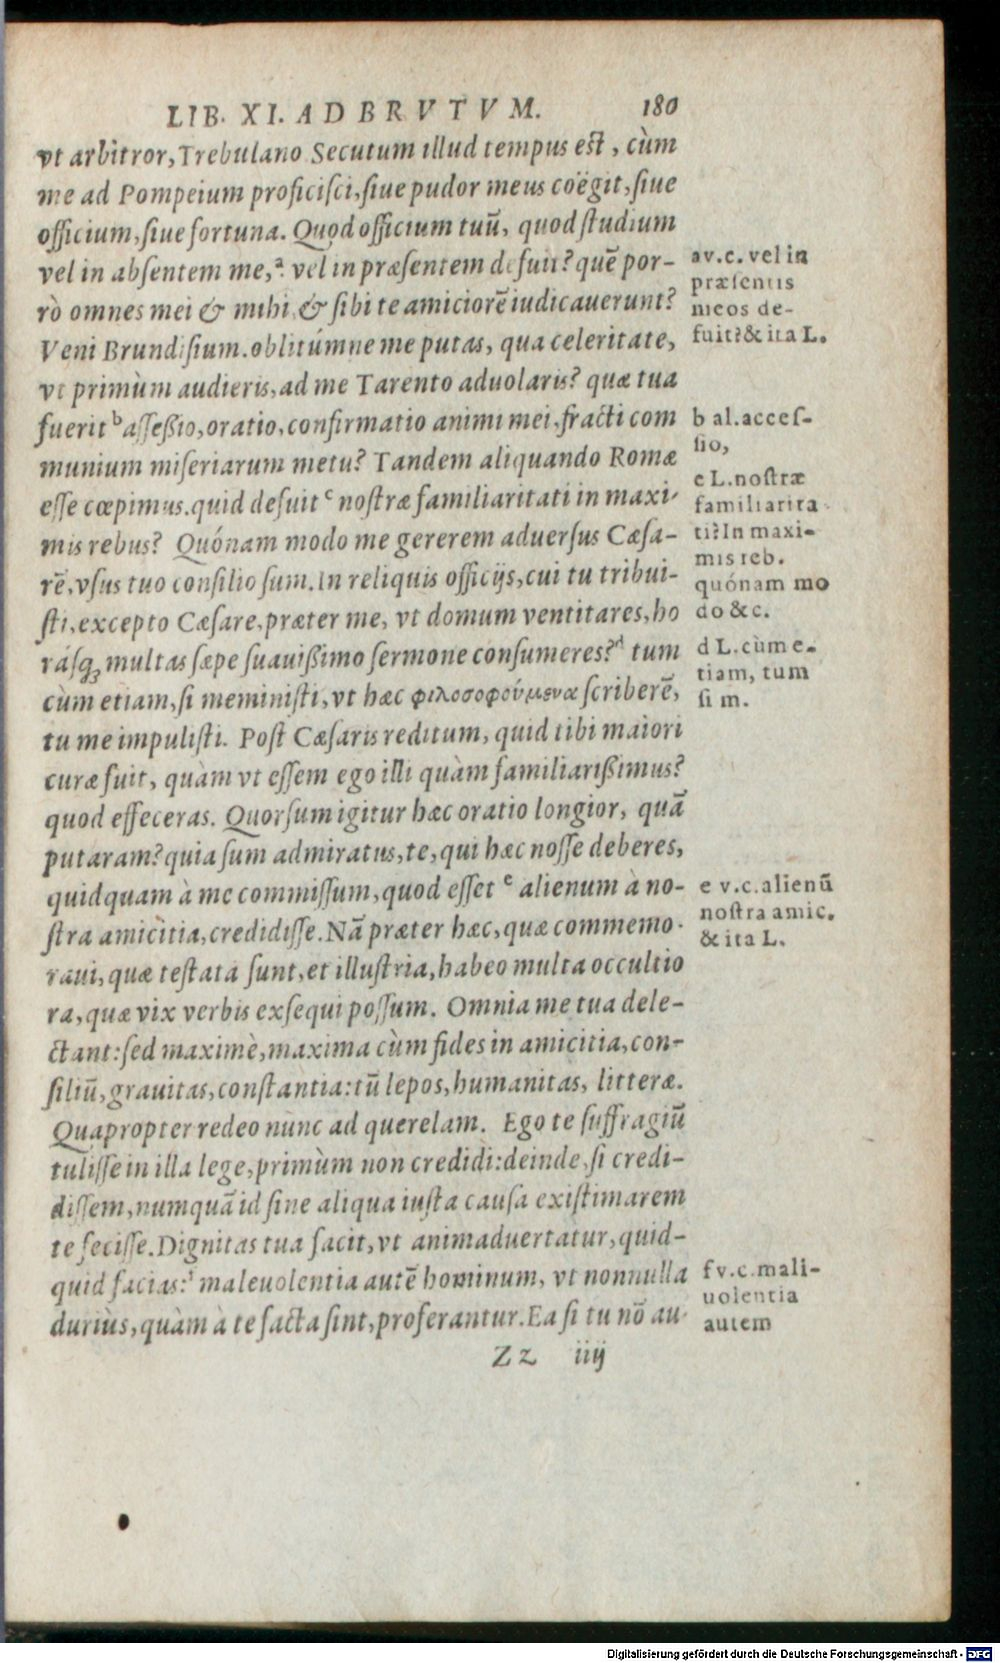 LIB. XI. AD BRVTVM. 180
vt arbitror, Trebulano Secutum illud tempus est, cùm
me ad Pompeium proficisci, siue pudor meus coëgit, siue
officium, siue fortuna. Quod officium tuũ, quod studium
vel in absentem me,ᵃ vel in præsentem defuit? quẽ por-
rò omnes mei & mihi, & sibi te amiciorẽ iudicauerunt?
Veni Brundisium. oblitúmne me putas, qua celeritate,
vt primùm audieris, ad me Tarento aduolaris? quæ tua
fuerit ᵇ assessio, oratio, confirmatio animi mei, fracti com
munium miseriarum metu? Tandem aliquando Romæ
esse cœpimus. quid defuit ᶜ nostræ familiaritati in maxi-
mis rebus? Quónam modo me gererem aduersus Cæsa-
rẽ, vsus tuo consilio sum. In reliquis officijs, cui tu tribui-
sti, excepto Cæsare, præter me, vt domum ventitares, ho
rásq; multas sæpe suauissimo sermone consumeres?ᵈ tum
cùm etiam, si meministi, vt hæc φιλοσοφούμενα scriberẽ,
tu me impulisti. Post Cæsaris reditum, quid tibi maiori
curæ fuit, quàm vt essem ego illi quàm familiarissimus?
quod effeceras. Quorsum igitur hæc oratio longior, quã
putaram? quia sum admiratus, te, qui hæc nosse deberes,
quidquam à me commissum, quod esset ᵉ alienum à no-
stra amicitia, credidisse. Nã præter hæc, quæ commemo-
raui, quæ testata sunt, et illustria, habeo multa occultio
ra, quæ vix verbis exsequi possum. Omnia me tua dele-
ctant: sed maxime, maxima cùm fides in amicitia, con-
siliũ, grauitas, constantia: tũ lepos, humanitas, litteræ.
Quapropter redeo nunc ad querelam. Ego te suffragiũ
tulisse in illa lege, primùm non credidi: deinde, si credi-
dissem, numquã id sine aliqua iusta causa existimarem
te fecisse. Dignitas tua facit, vt animaduertatur, quid-
quid facias:ᶠ maleuolentia autẽ hominum, vt nonnulla
duriùs, quàm à te facta sint, proferantur. Ea si tu nõ au-
Zz iiij
a v.c. vel in
præsentis
meos de-
fuit? & ita L.
b al. acces-
sio,
c L. nostræ
familiarita
ti? In maxi-
mis reb.
quónam mo
do &c.
d L. cùm e-
tiam, tum
si m.
e v.c. alienũ
nostra amic.
& ita L.
f v.c. mali-
uolentia
autem
Digitalisierung gefördert durch die Deutsche Forschungsgemeinschaft - DFG